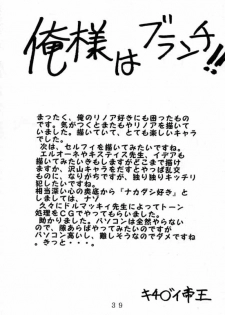 俺様はブランチ!!
まったく、俺のリノア好きにも困ったもの
です。気がつくとまたもやリノアを描いて
いました。描いていて、とても楽しいキャラ
でした。
次は、セルフィを描いてみたいですね。
エルオーネやキスティス先生、イデアも
描いてみたいきもしますがどこまで描け
ますか、沢山キャラをだすとやっぱ乱交
ものに、なりがちですが、独り独りキッチリ
犯したいですね。
相当深い心の奥底から「ナカダシ好き」と
しましては、ナゾ
久々にドルマッキィ先生によってトーン
処理をCGでやってもらいました。
大変助かりました。パソコンは全然やらない
ので、暇あらばやってみたいのですが
パソコン高いし、難しそうなのでダメですね
。きっと・・・。
39
帝王